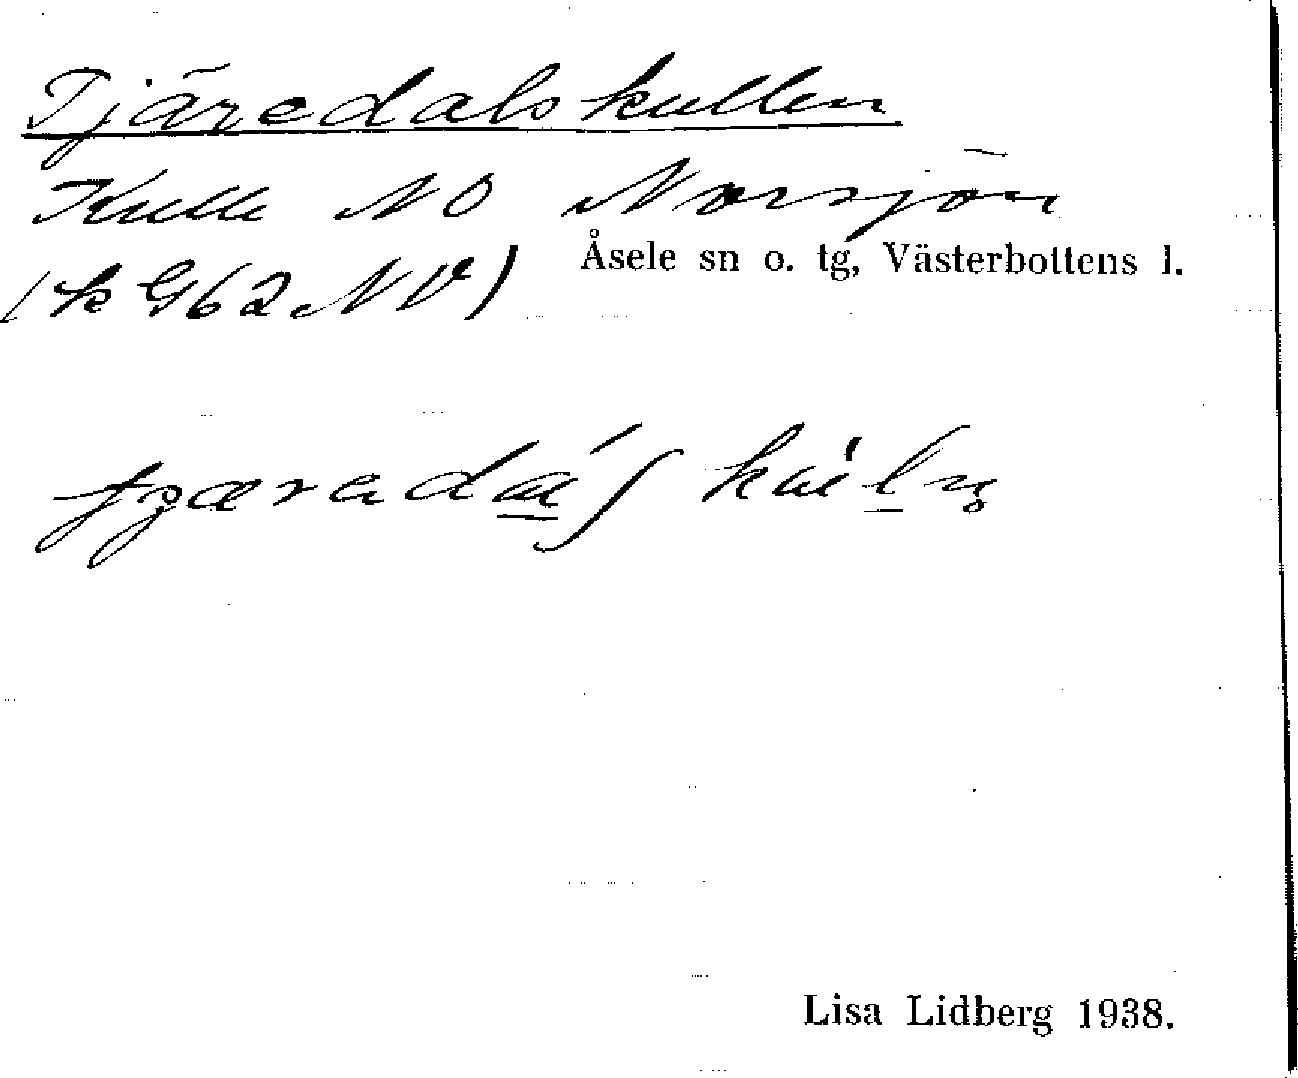 Tjäredalskullen
Kulle NO Norrsjön
(k G62 NV)
Åsele sn o. tg, Västerbottens l.
Lisa Lidberg 1938.